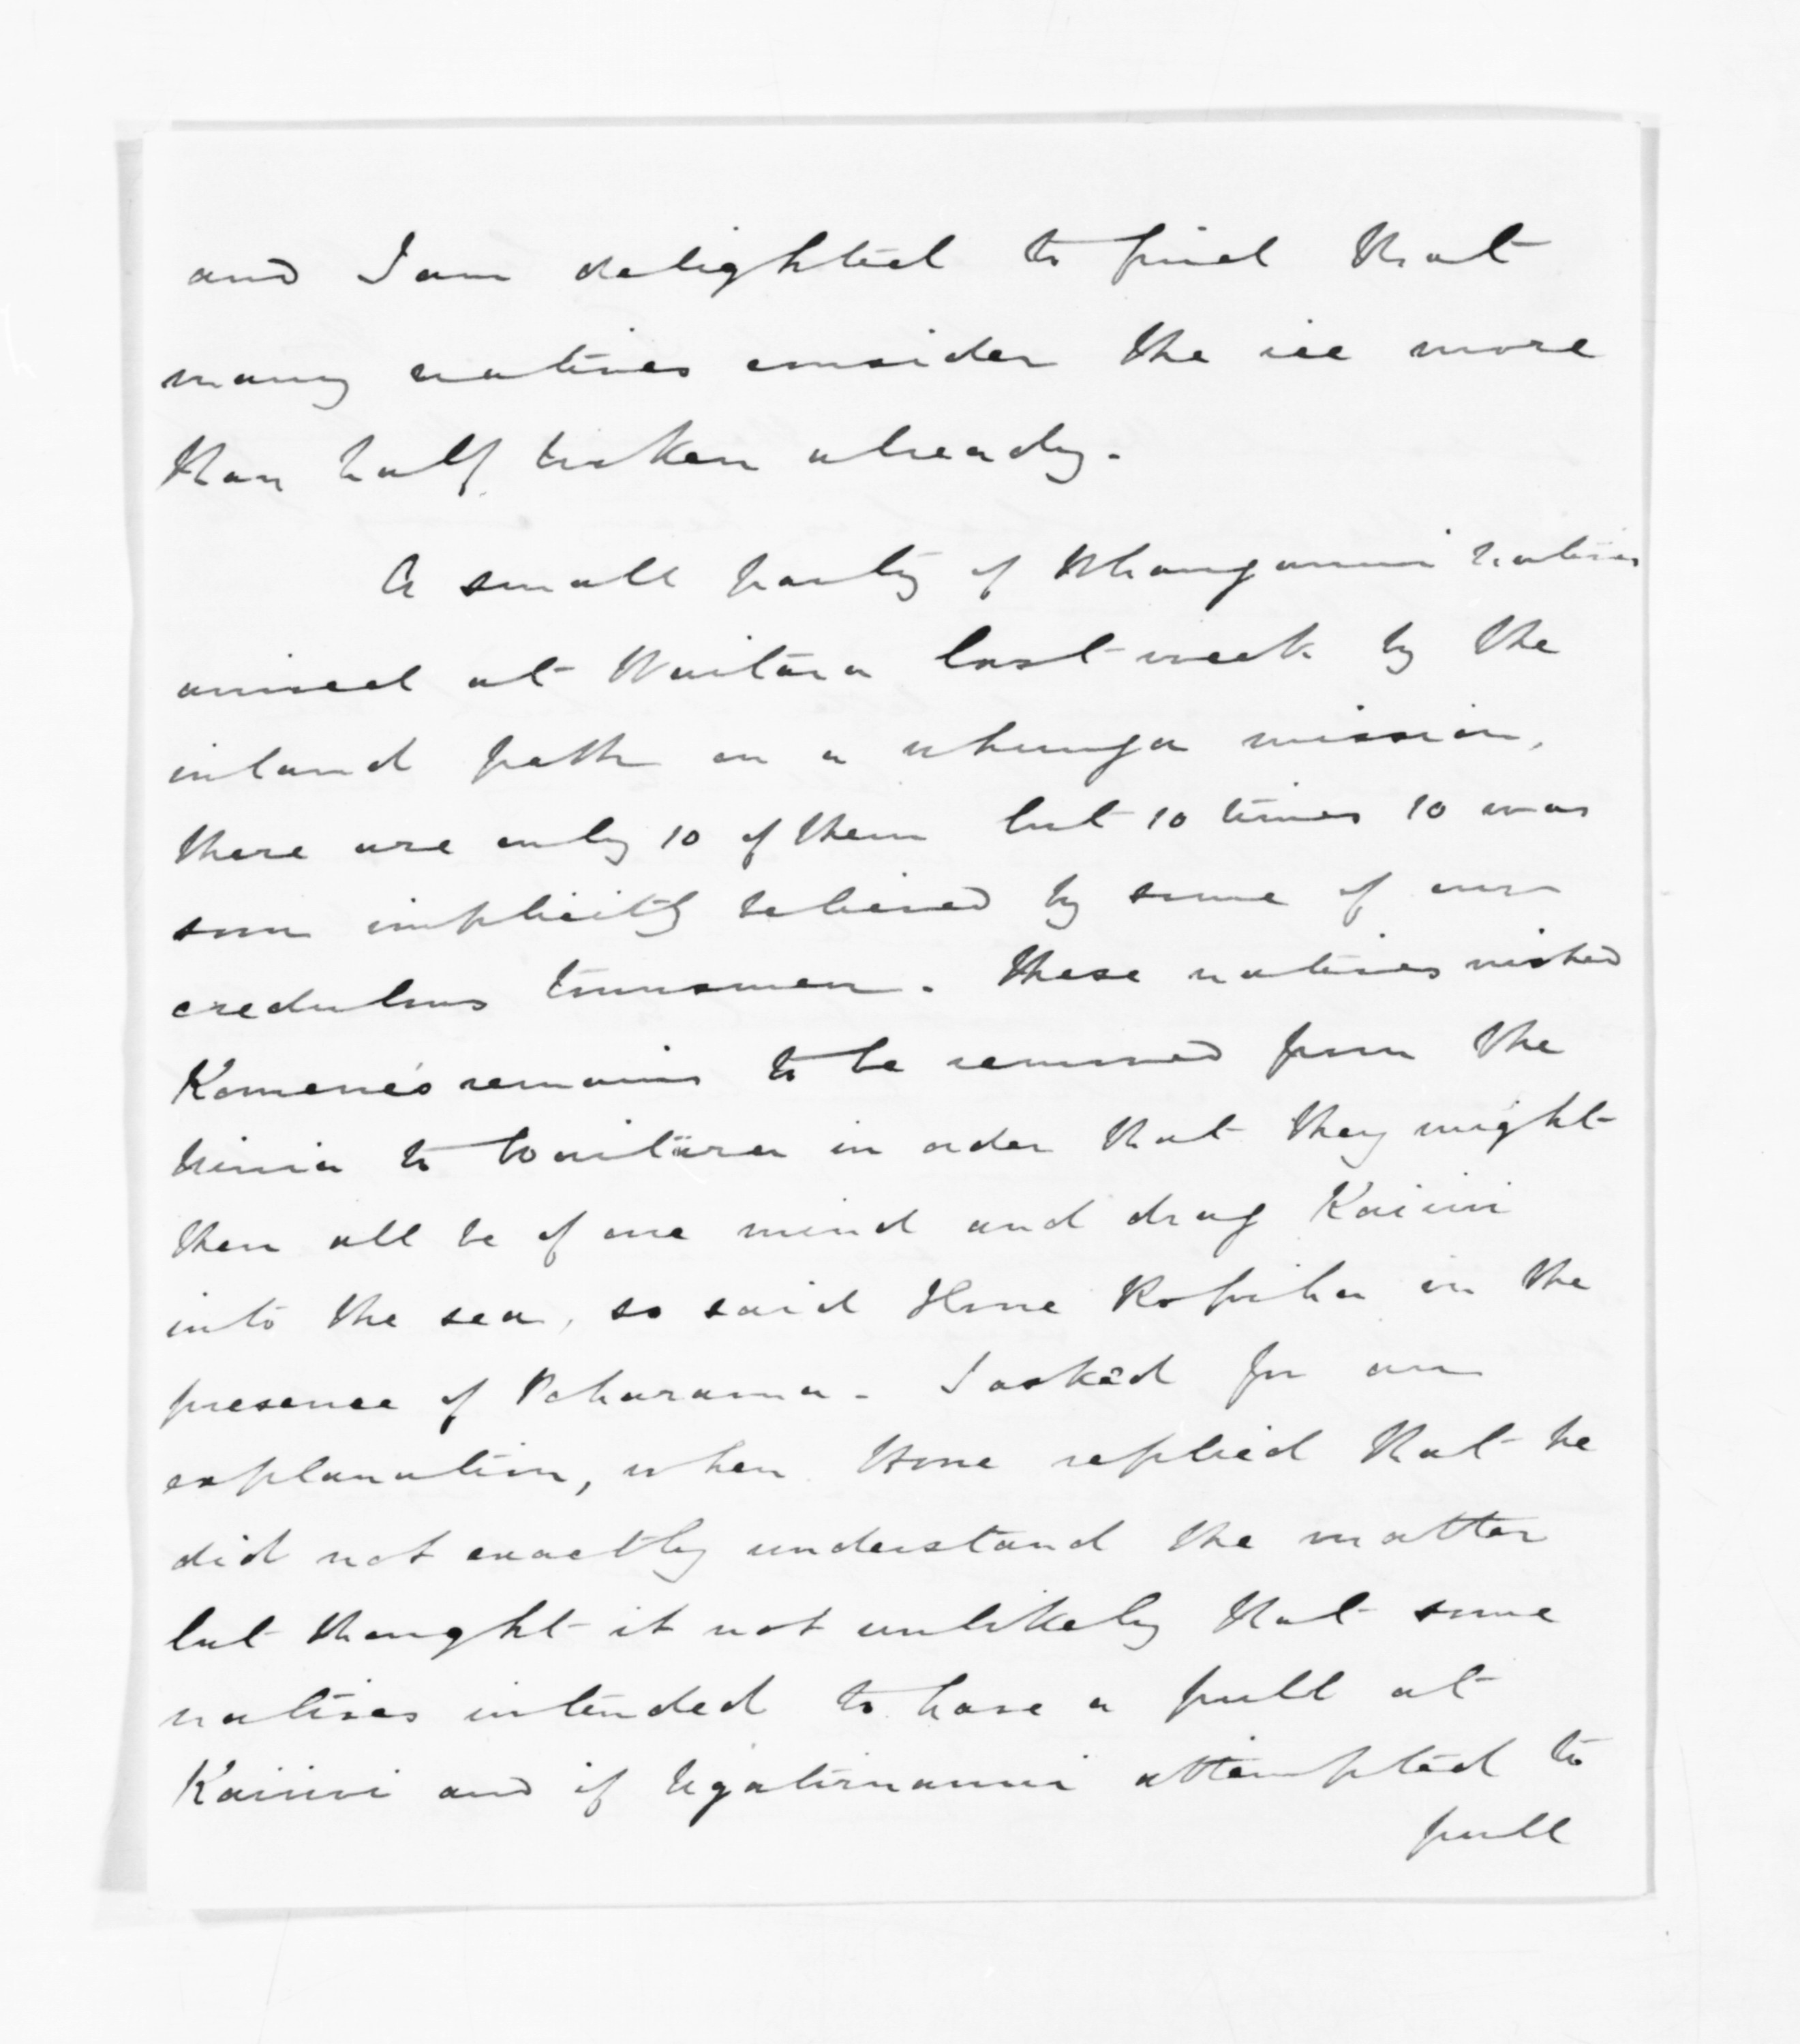 and I am delighted to find that
many natives consider the ice more
than half broken already.
A small party of Whanganui natives
arrived at Waitara last week by the
inland path on a whunga mission,
there are only 10 of them but 10 times 10 was
soon implicitly believed by some of our
credulous townsmen. These natives wished
Komene's remains to be removed from the
to Waitara in order that they might
then all be of one mind and drag Kaiiwi
into the sea, so said Hone Ropiha in the
presence of Poharama. I asked for an
explanation, when Hone replied that he
did not exactly understand the matter
but thought it not unlikely that some
natives intended to have a pull at
Kaiiwi and if Ngatiruanui attempted to
pull